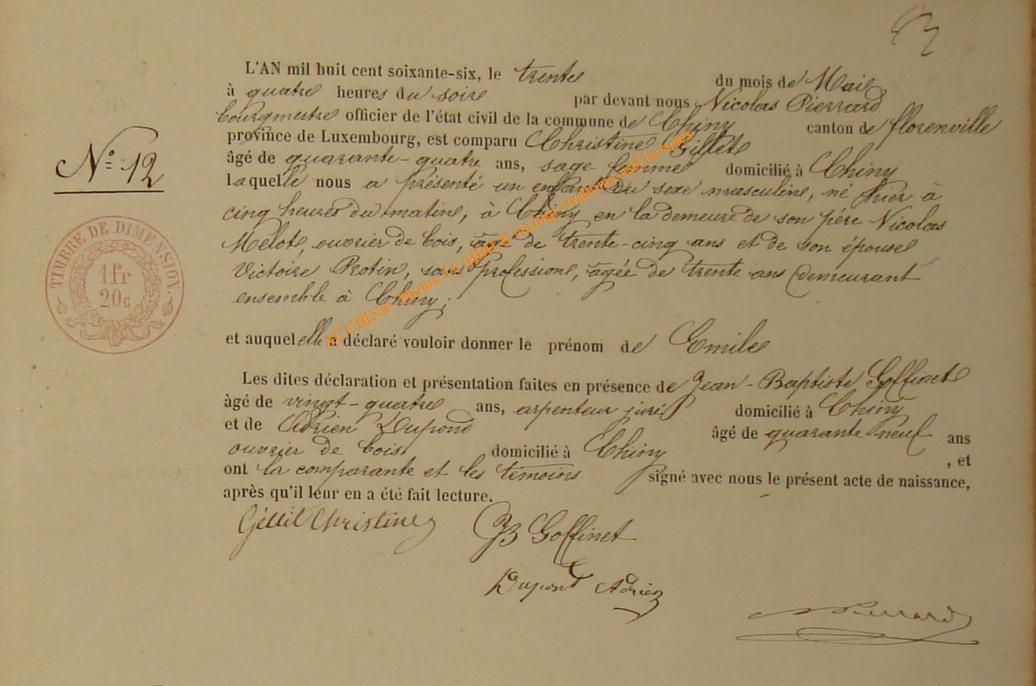 N° 12
TIMBRE DE DIMENSION
1fr
20c
L'AN mil huit cent soixante-six, le trente du mois de Mai
à quatre heures du soir par devant nous Nicolas Pierrard
bourgmestre officier de l'état civil de la commune de Chiny canton de florenville
province de Luxembourg, est comparu Christine Gillet
âgé de quarante-quatre ans, sage femme domicilié à Chiny
laquelle nous a présenté un enfant du sexe masculin, né hier à
cinq heures du matin, à Chiny en la demeure de son père Nicolas
Mélot, ouvrier de bois, âgé de trente-cinq ans et de son épouse
Victoire Protin, sans profession, âgée de trente ans demeurant
ensemble à Chiny;
et auquel elle a déclaré vouloir donner le prénom de Emile
Les dites déclaration et présentation faites en présence de Jean-Baptiste Goffinet
âgé de vingt-quatre ans, arpenteur juré domicilié à Chiny
et de Adrien Dupond âgé de quarante neuf ans
ouvrier de bois domicilié à Chiny , et
ont la comparante et les témoins signé avec nous le présent acte de naissance,
après qu'il leur en a été fait lecture.
Gillet Christine JB Goffinet
Dupont Adrien
N Pierrard